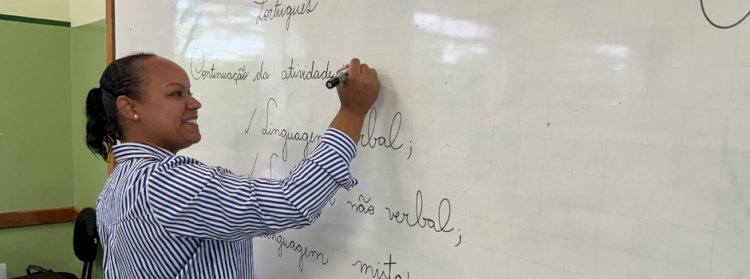 Português
Continuação da atividade
√ Linguagem verbal;
não verbal;
Linguagem mista